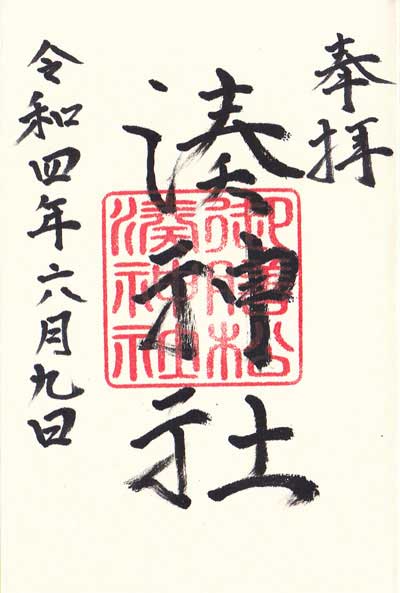 奉拝
湊神社
御勝松
湊神社
令和四年六月九日